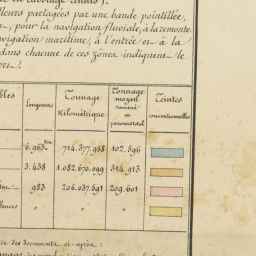 fleurs partagées par une bande pointillée,
pour la navigation fluviale, à la remonte
navigation maritime, à l'entrée et à la
dans chacune de ces zones indiquent le
Longueurs
Tonnage
Kilométrique
Tonnage
moyen
ramené
au
parcours total
Teintes
conventionnelles
6.963 Km 714.377.988 102.596
3.438 1.082.670.099 314.913
983 206.037.891 209.601
" "
des documents ci-après :